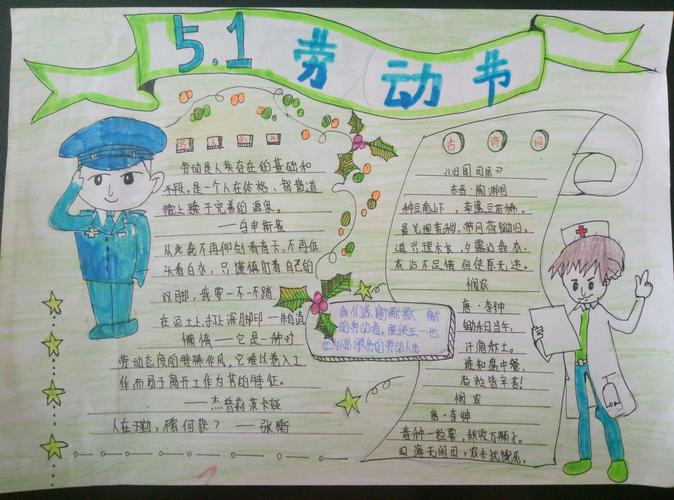 5.1 劳动节
名人名言
劳动是人类存在的基础和
手段,是一个人在体格、智慧道
德上臻于完善的源泉。
——乌申斯基
从此我不再仰勺看青天,不再低
头看白水,只谨慎着自己的
双脚,我要一步一步踏
在泥土上,打上深深的脚印 —朱自清
懒惰——它是一种对
劳动态度的特殊作风,它难以卷入工
作而易于离开工作为其的特征。
——杰普莉茨卡娅
人在于勤,不索何获? ——张衡
我们感谢默默
的劳动者
为人民服务的劳动人民
古诗词
《归园田居》
东晋·陶渊明
种豆南山下,草盛豆苗稀。
晨兴理荒秽,带月荷锄归。
道狭草木长,夕露沾我衣。
衣沾不足惜,但使愿无违。
悯农
唐·李绅
锄禾日当午,
汗滴禾土。
谁知盘中餐,
粒粒皆辛苦!
悯农
唐·李绅
春种一粒粟,秋收万颗子。
四海无闲田,农夫犹饿死。